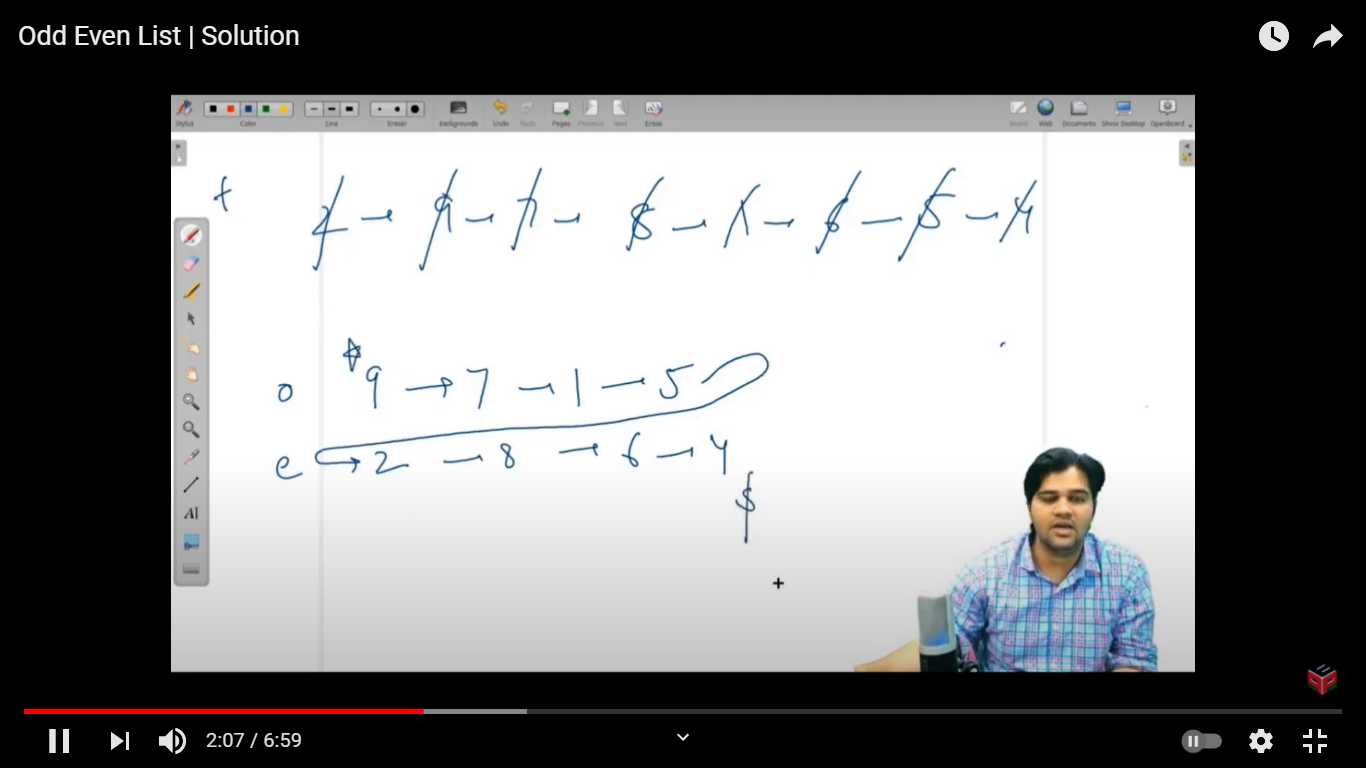 Odd Even List | Solution
Stylus Color Line Eraser Backgrounds Undo Redo Pages Previous Next Erase Board Web Documents Show Desktop OpenBoard
t 2 → 9 → 7 → 8 → 1 → 6 → 5 → 4
o 9 → 7 → 1 → 5
e → 2 → 8 → 6 → 4
AI
2:07 / 6:59